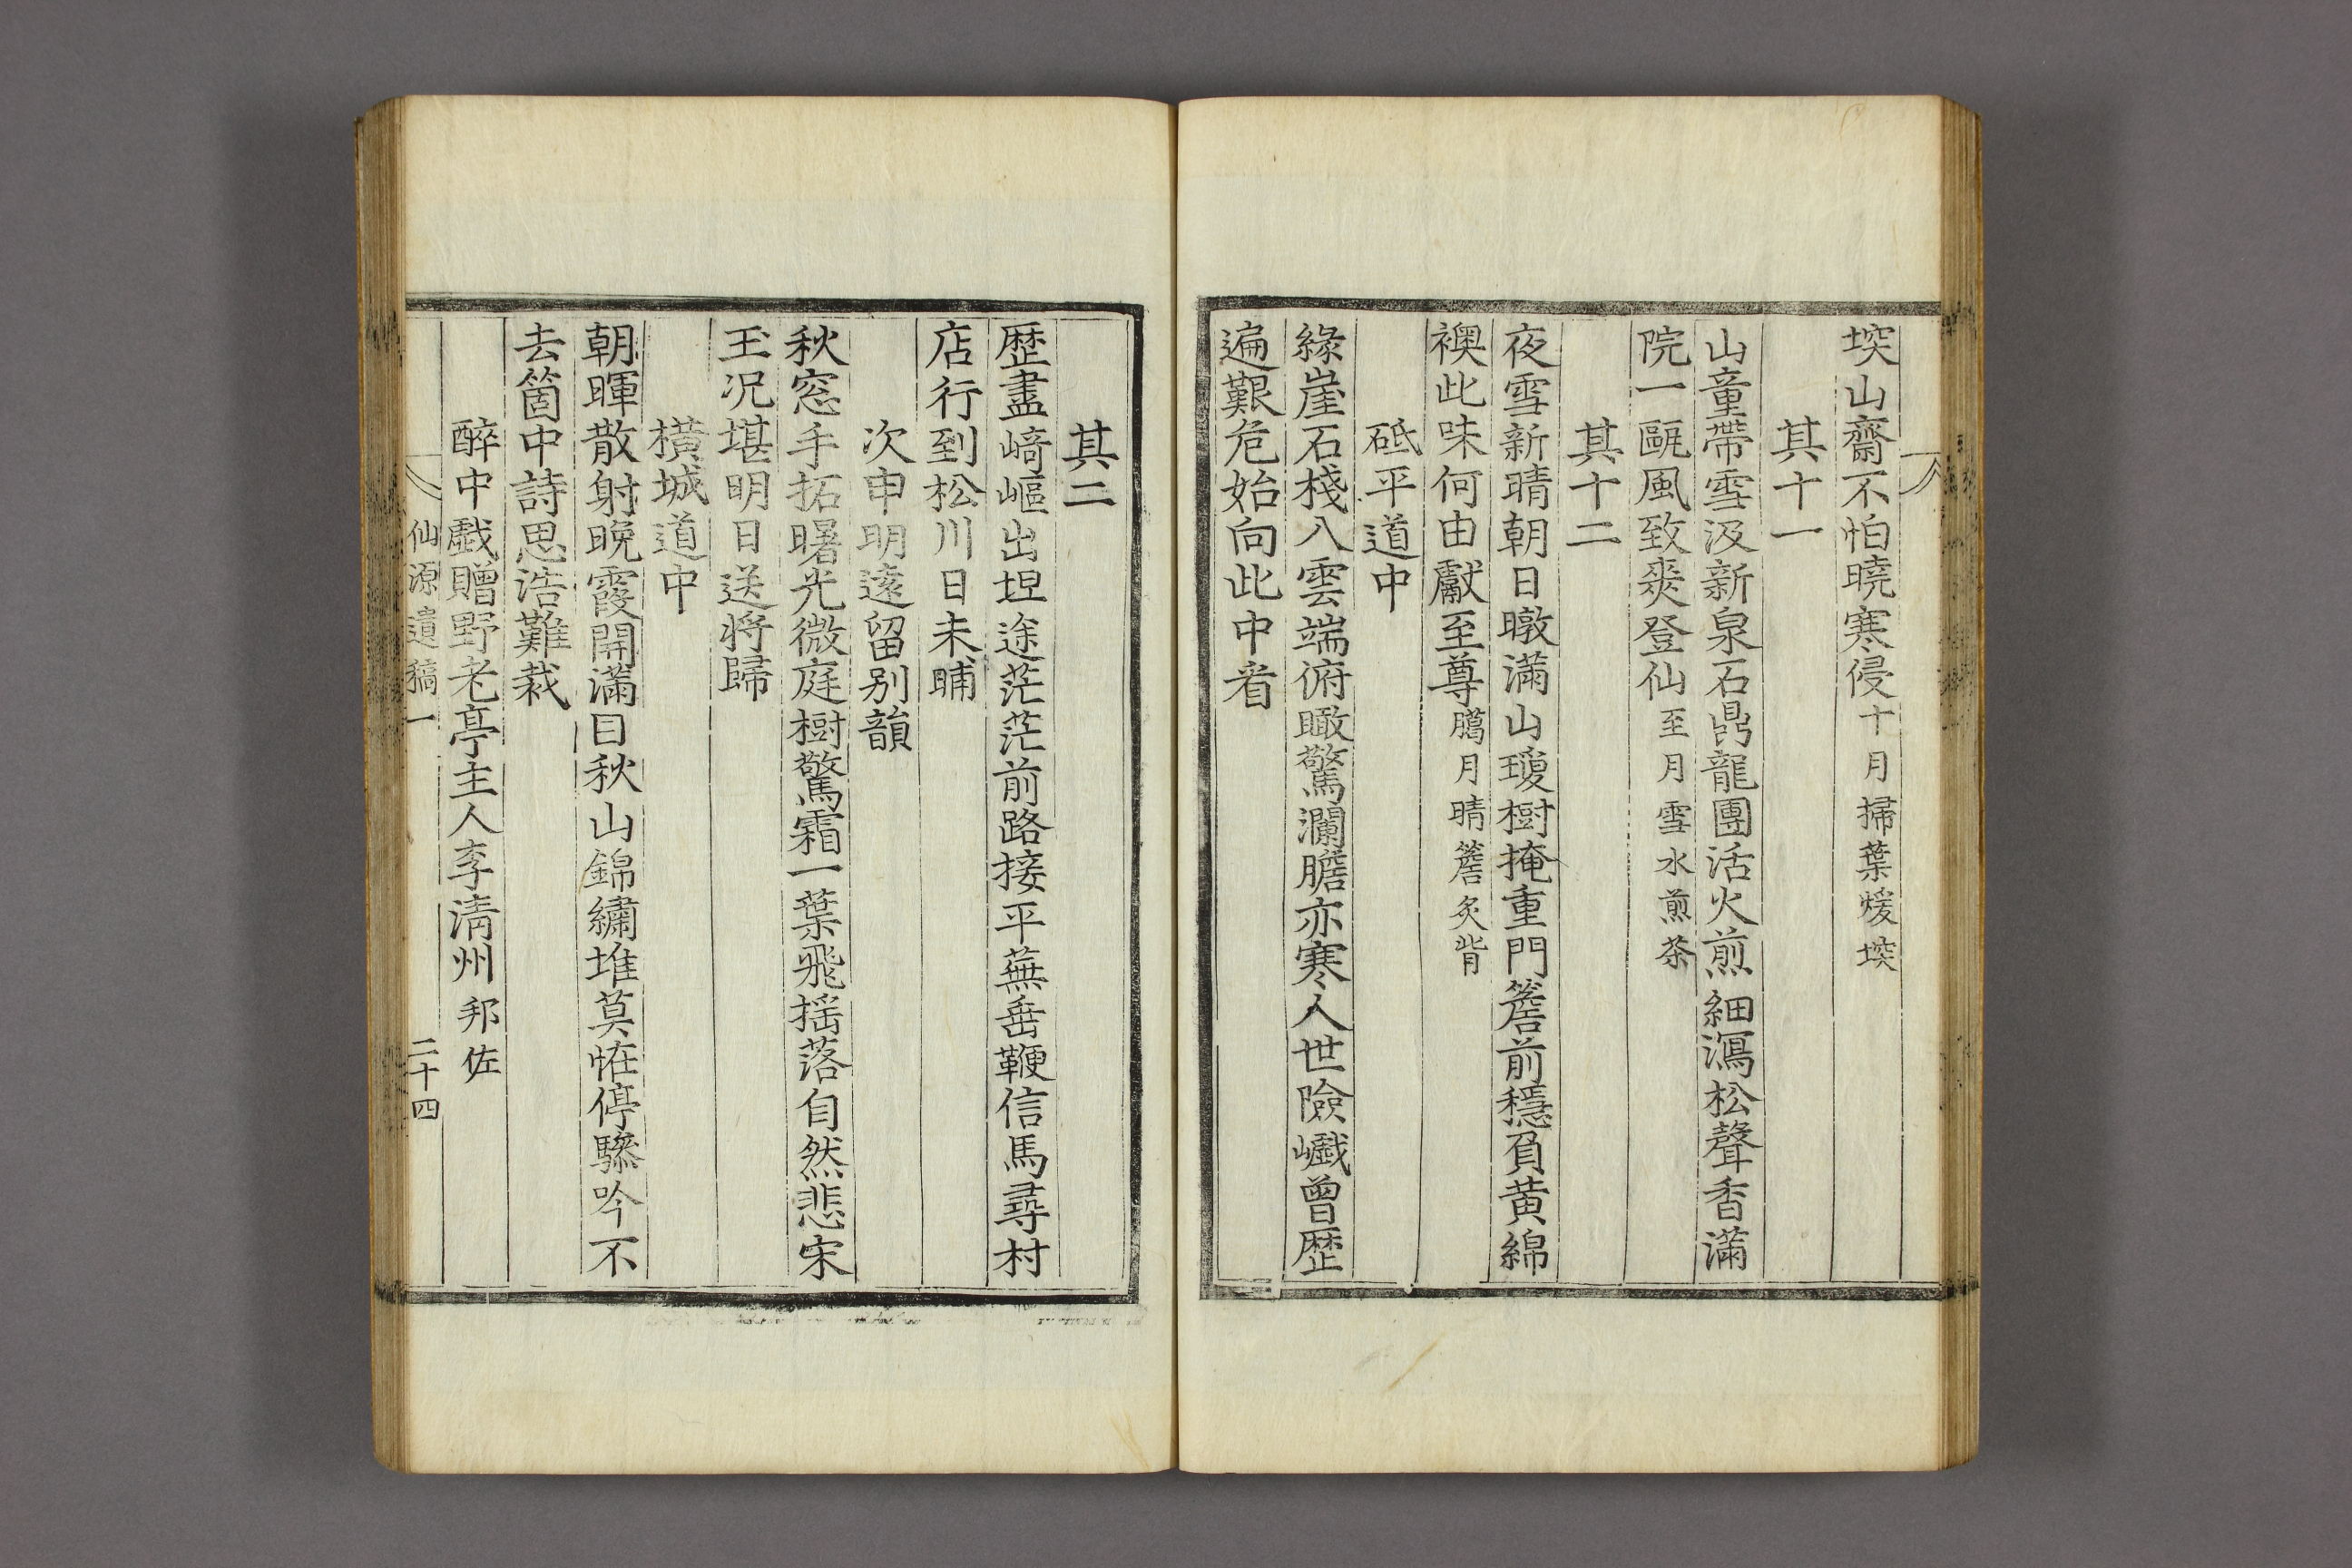 堗山齋不怕曉寒侵十月掃葉煖堗
其十一
山童帶雪汲新泉石鼎龍團活火煎細瀉松聲香滿
院一甌風致爽登仙至月雪水煎茶
其十二
夜雪新晴朝日暾滿山瓊樹掩重門簷前穩負黃綿
襖此味何由獻至尊臈月晴簷炙背
砥平道中
緣崖石棧入雲端俯瞰驚瀾膽亦寒人世險巇曾歷
遍艱危始向此中看
其二
歷盡崎嶇出坦途茫茫前路接平蕪垂鞭信馬尋村
店行到松川日未晡
次申明遠留别韻
秋窓手拓曙光微庭樹驚霜一葉飛搖落自然悲宋
玉况堪明日送將歸
橫城道中
朝暉散射晩霞開滿目秋山錦繡堆莫恠停驂吟不
去箇中詩思浩難裁
醉中戱贈野老亭主人李淸州邦佐
仙源遺稿一 二十四